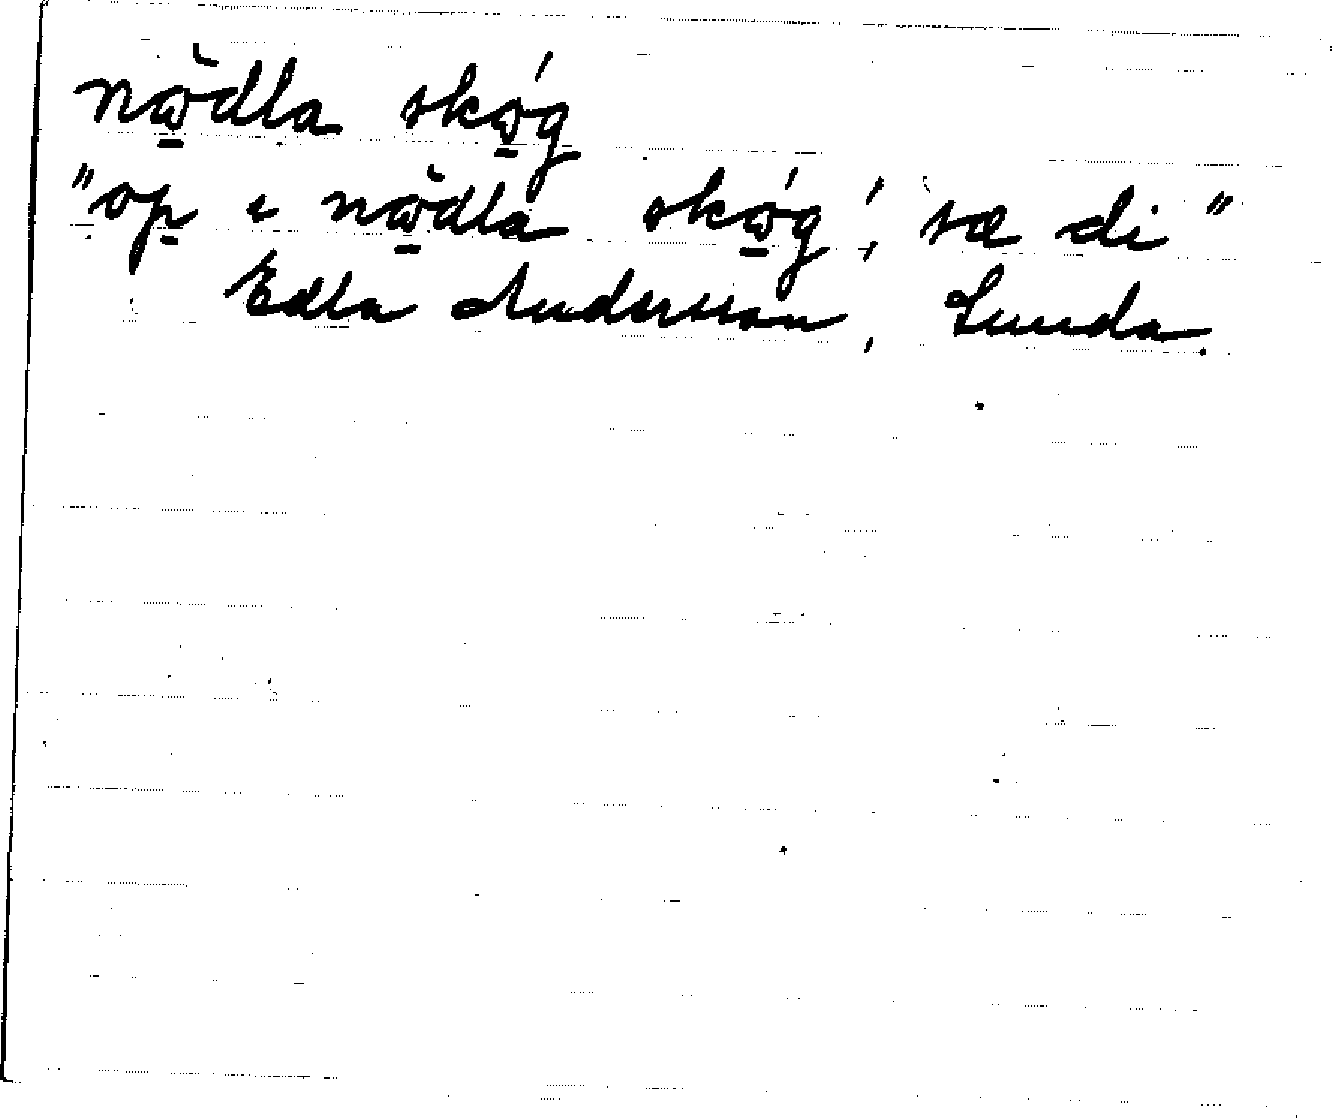 nὼ̠dla skώ̠g
"op̠ ɩ nὼ̠dla skώ̠g', sæ di"
Edla Andersson, Lunda.